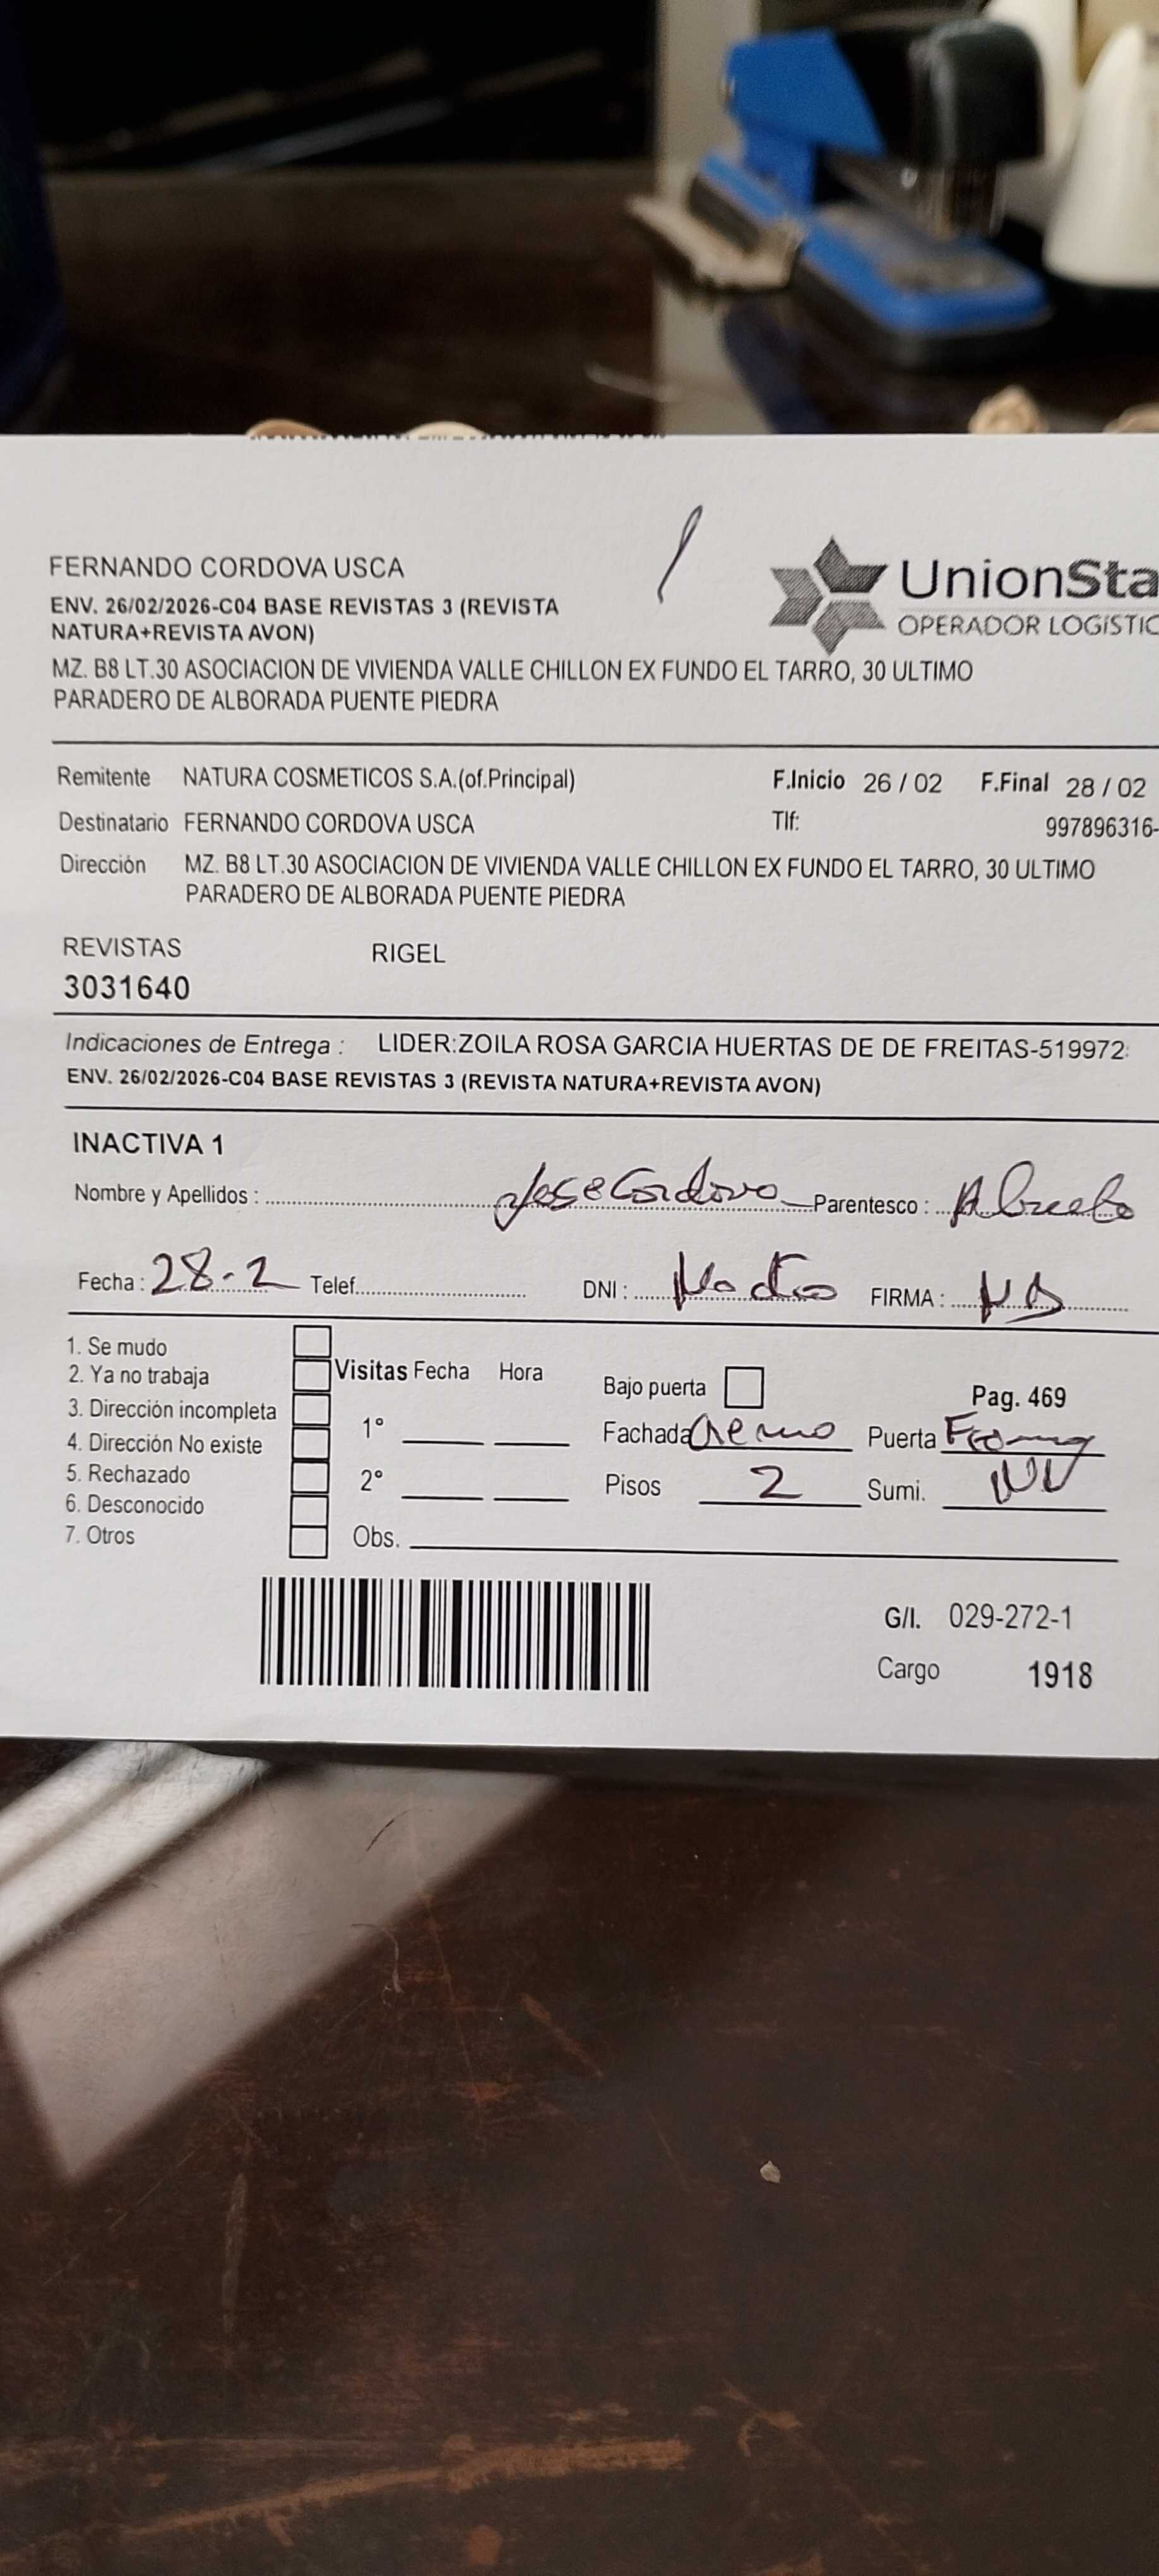 FERNANDO CORDOVA USCA
ENV. 26/02/2026-C04 BASE REVISTAS 3 (REVISTA
NATURA+REVISTA AVON)
MZ. B8 LT.30 ASOCIACION DE VIVIENDA VALLE CHILLON EX FUNDO EL TARRO, 30 ULTIMO
PARADERO DE ALBORADA PUENTE PIEDRA
UnionSta
OPERADOR LOGÍSTIC
Remitente NATURA COSMETICOS S.A.(of.Principal) F.Inicio 26 / 02 F.Final 28 / 02
Destinatario FERNANDO CORDOVA USCA Tlf: 997896316-
Dirección MZ. B8 LT.30 ASOCIACION DE VIVIENDA VALLE CHILLON EX FUNDO EL TARRO, 30 ULTIMO
PARADERO DE ALBORADA PUENTE PIEDRA
REVISTAS RIGEL
3031640
Indicaciones de Entrega : LIDER:ZOILA ROSA GARCIA HUERTAS DE DE FREITAS-519972
ENV. 26/02/2026-C04 BASE REVISTAS 3 (REVISTA NATURA+REVISTA AVON)
INACTIVA 1
Nombre y Apellidos : Jose Cordova Parentesco : Abuelo
Fecha : 28-2 Telef. DNI : FIRMA :
1. Se mudo
2. Ya no trabaja Visitas Fecha Hora Bajo puerta Pag. 469
3. Dirección incompleta 1° Fachada Puerta
4. Dirección No existe
5. Rechazado 2° Pisos 2 Sumi.
6. Desconocido
7. Otros Obs.
G/I. 029-272-1
Cargo 1918